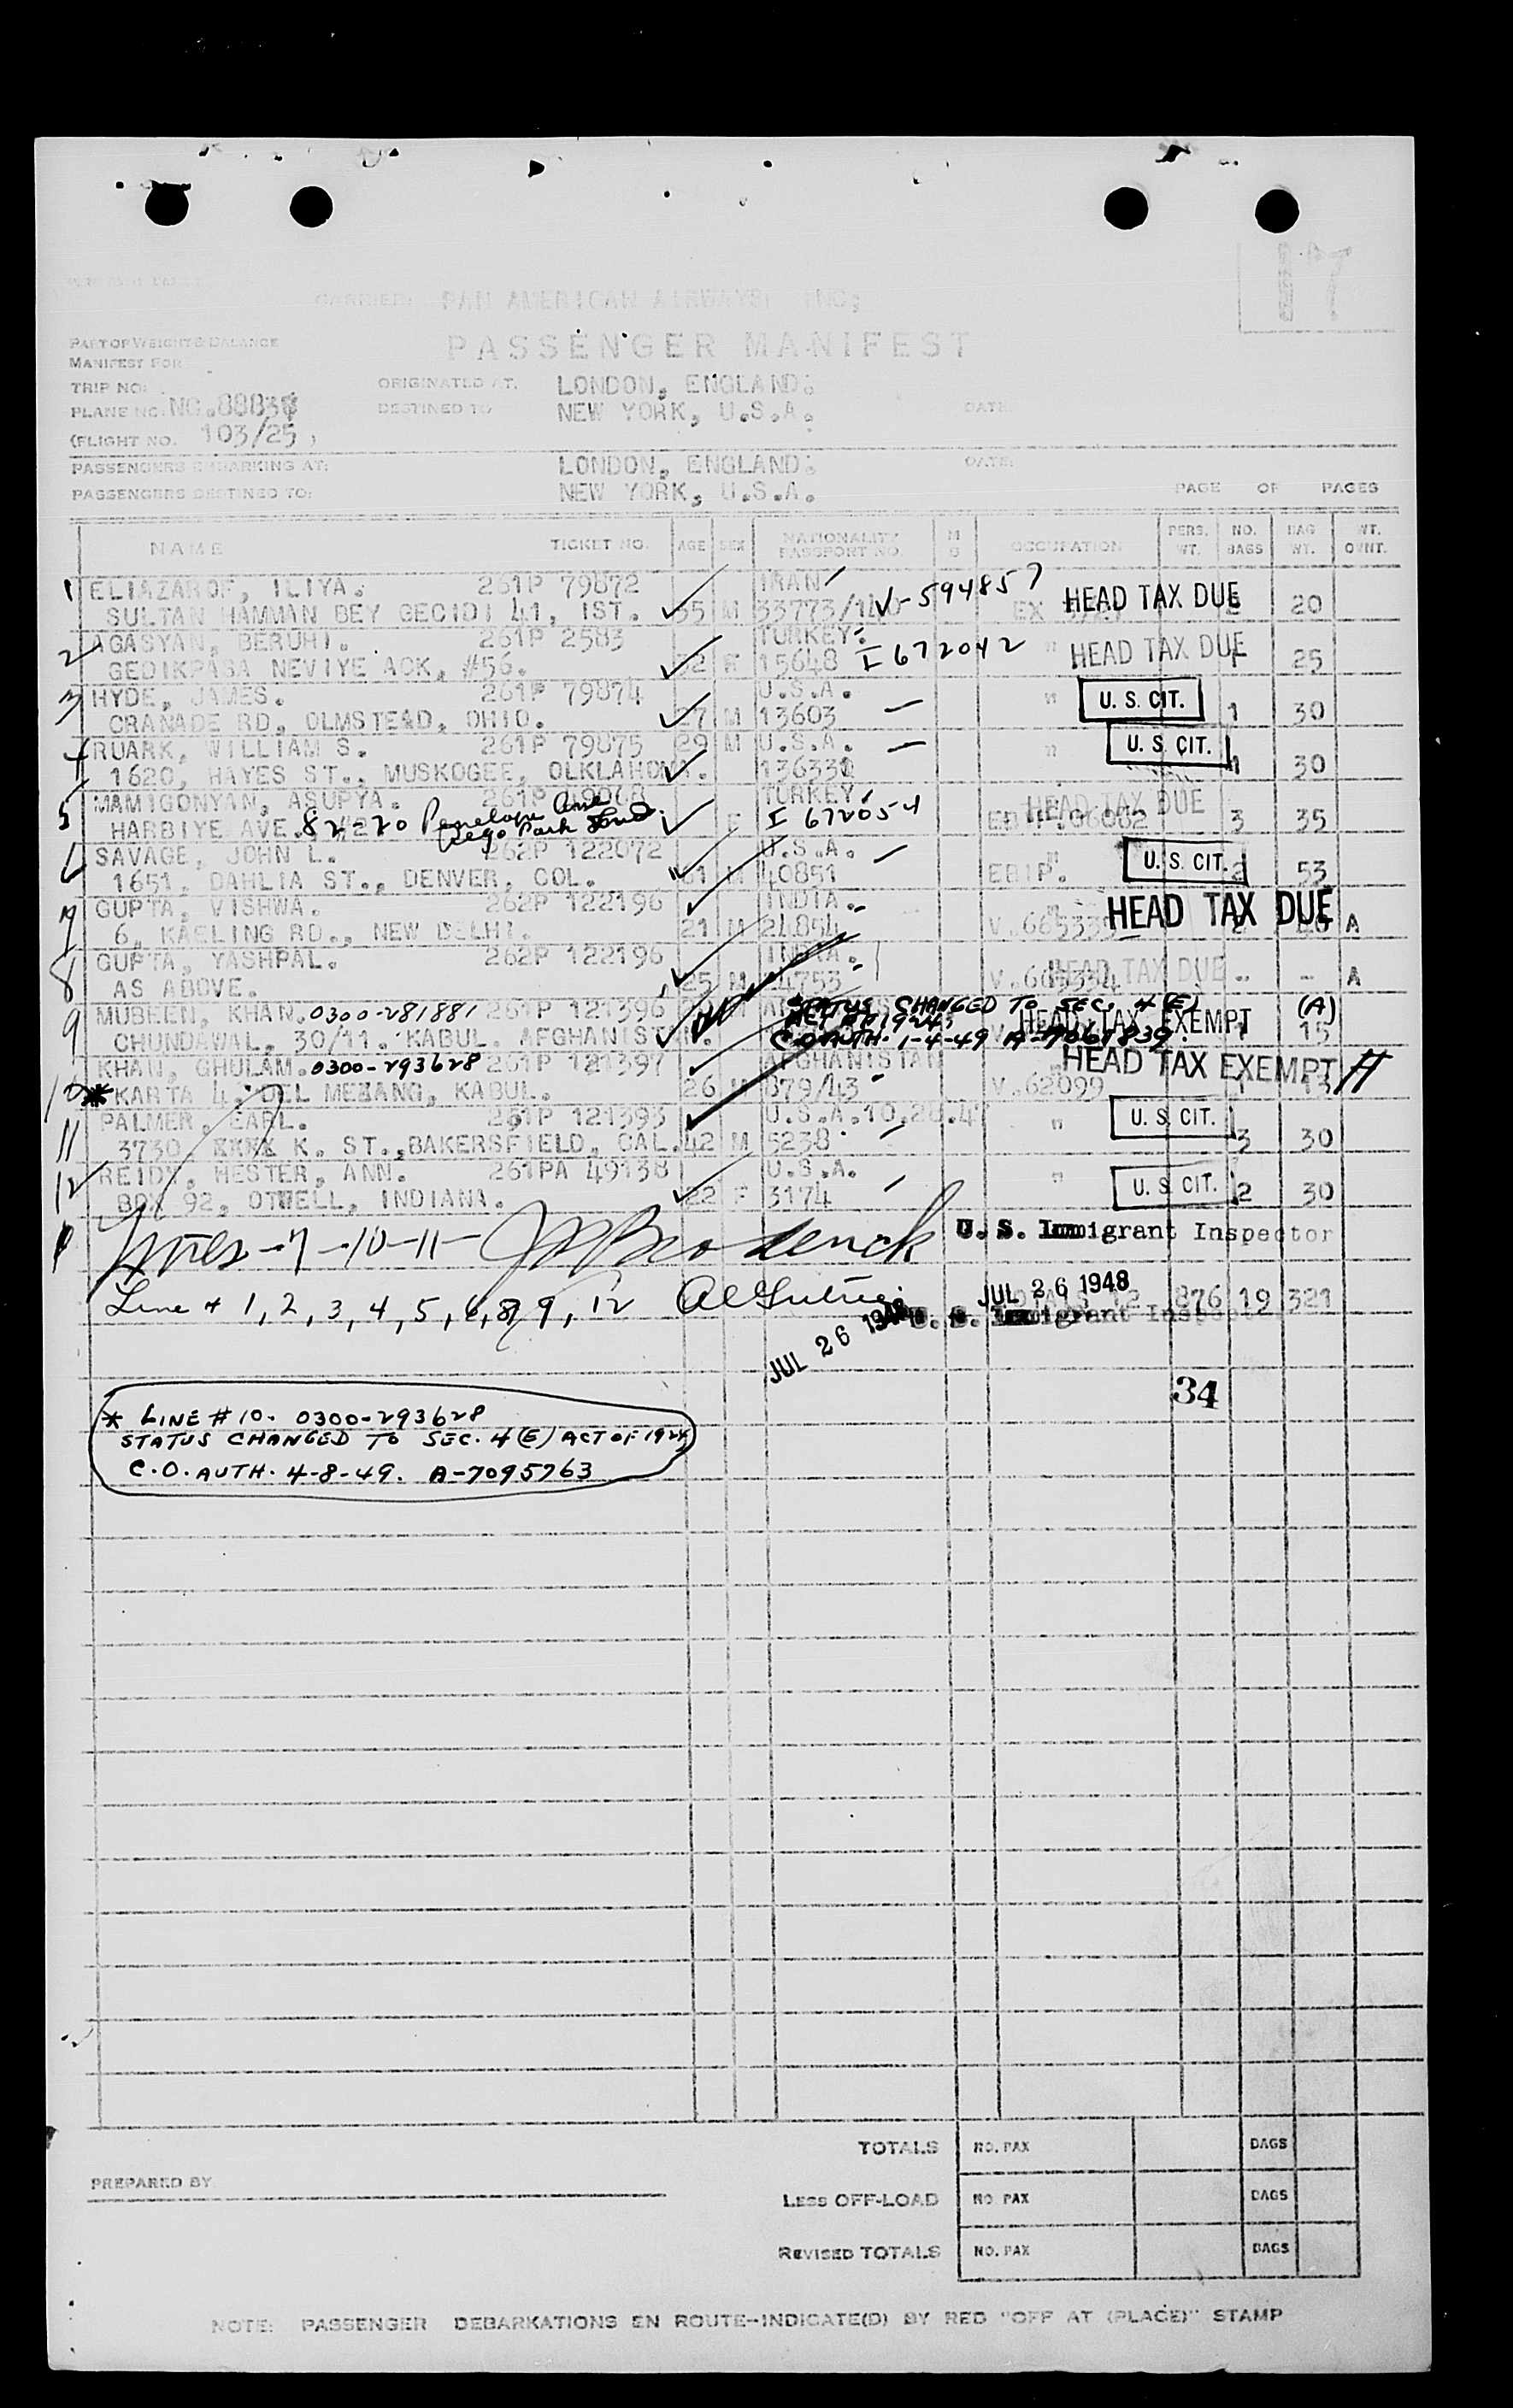 17
CARRIER: PAN AMERICAN AIRWAYS, INC;
PASSENGER MANIFEST
PART OF WEIGHT & BALANCE
MANIFEST FOR
TRIP NO:
ORIGINATED AT. LONDON, ENGLAND:
PLANE NO. NC.8883
DESTINED TO NEW YORK, U.S.A. DATE
(FLIGHT NO. 103/25 )
PASSENGERS EMBARKING AT: LONDON, ENGLAND: DATE:
PASSENGERS DESTINED TO: NEW YORK, U.S.A. PAGE OF PAGES
NAME TICKET NO. AGE SEX NATIONALITY PASSPORT NO. M S OCCUPATION PERS. WT. NO. BAGS BAG WT. WT. OVNT.
1 ELIAZAROF, ILIYA. 261P 79872 IRAN V-594857 HEAD TAX DUE
SULTAN HAMMAN BEY GECIDI 41, IST. 35 M 33773/140 EX 20
2 AGASYAN, BERUHI. 261P 2583 TURKEY. I 672042 HEAD TAX DUE
GEDIKPASA NEVIYE ACK, #56. 32 F 15648 " 1 25
3 HYDE, JAMES. 261P 79874 U.S.A. U. S. CIT.
CRANADE RD, OLMSTEAD, OHIO. 27 M 13603 " 1 30
4 RUARK, WILLIAM S. 261P 79875 29 M U.S.A. U. S. CIT.
1620, HAYES ST., MUSKOGEE, OLKLAHOMA. 136330 " 1 30
5 MAMIGONYAN, ASUPYA. 261P 49068 TURKEY. HEAD TAX DUE
HARBIYE AVE. 82-20 Penelope Ave Rego Park F I 672054 3 35
6 SAVAGE, JOHN L. 262P 122072 U.S.A. U. S. CIT.
1651, DAHLIA ST., DENVER, COL. 61 M 40851 EBIP. 2 53
7 GUPTA, VISHWA. 262P 122196 INDIA. HEAD TAX DUE
6, KAELING RD., NEW DELHI. 21 M 24854 V.665335 A
8 GUPTA, YASHPAL. 262P 122196 INDIA. HEAD TAX DUE
AS ABOVE. 25 M 4753 V.665334 - - A
9 MUBEEN, KHAN. 0300-281881 261P 121396 STATUS CHANGED TO SEC. 4 (E) (A)
ACT OF 1924 HEAD TAX EXEMPT
CHUNDAWAL. 30/11. KABUL. AFGHANISTAN. C.O. AUTH. 1-4-49 A-7061839. 1 15
10 KHAN, GHULAM. 0300-293628 261P 121397 AFGHANISTAN HEAD TAX EXEMPT A
* KARTA 4. DEL MEZANG, KABUL. 26 M 879/43 V.62099 1 13
11 PALMER, EARL. 261P 121393 U.S.A. 10.28.47 U. S. CIT.
3730 XXXX K. ST., BAKERSFIELD, CAL. 42 M 5238 " 3 30
12 REIDY, HESTER, ANN. 261PA 49138 U.S.A. U. S. CIT.
BOX 92, OTWELL, INDIANA. 22 F 3174 " 2 30
Lines -7-10-11- U. S. Immigrant Inspector
Line # 1, 2, 3, 4, 5, 6, 8, 9, 12 JUL 26 1948 876 19 321
U. S. Immigrant Inspector
JUL 26 1948
34
* LINE #10. 0300-293628
STATUS CHANGED TO SEC. 4 (E) ACT OF 1924
C.O. AUTH. 4-8-49. A-7095763
TOTALS NO. PAX BAGS
PREPARED BY
LESS OFF-LOAD NO PAX BAGS
REVISED TOTALS NO. PAX BAGS
NOTE: PASSENGER DEBARKATIONS EN ROUTE--INDICATE(D) BY RED "OFF AT (PLACE)" STAMP